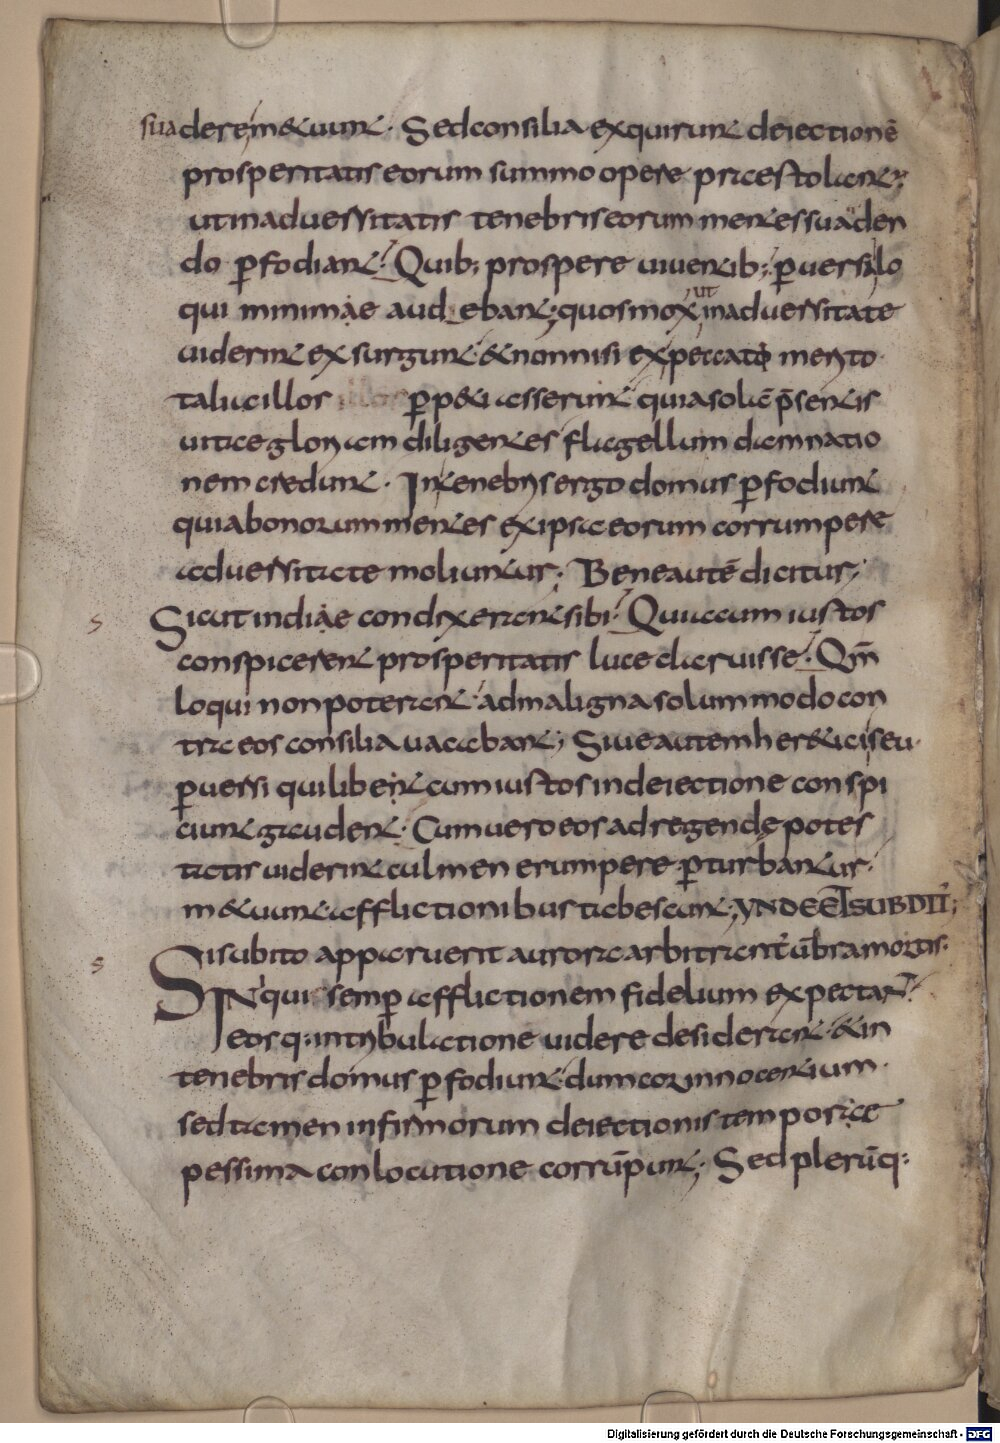 suaderemetuunt. Sed consilia exquirunt deiectionē
prosperitatis eorum summo opere praestolant;
ut in aduersitatis tenebris eorum mentes suaden
do p̱fodiant. Quib; prospere uiuentib; p̱uersi lo
qui minimae audebant; quos mox ut in aduersitate
uiderint exsurgunt & nonnisi ex peccato merito
talia illos p̱peti asserunt quia solā p̄sentis
uitae gloriam diligentes flagellum damnatio
nem credunt. In tenebris ergo domus p̱fodiunt
quia bonorum mentes ex ipsa eorum corrumpere
aduersitate moliuntur; Bene autē dicitur;
S Sicut in diae condixerant sibi. Qui cum iustos
conspicerent prosperitatis luce claruisse. Qm̄
loqui non poterant. ad maligna solummodo con
tra eos consilia uacabant; Siue autem heretici seu
p̱uersi quilibet cum iustos in deiectione conspi
ciunt gaudent. Cum uero eos ad regende potes
tatis uiderint culmen erumpere p̱turbantur.
metuunt. afflictionibus tabescunt; UNDE ET SUBDIT;
S Si subito apparuerit aurora arbitrant' ūbra mortis.
IN'qui semp̱ afflictionem fidelium expectant.
eosq; in tribulatione uidere desiderant. & in
tenebris domus p̱fodiunt. dum cor innocentium
sed tamen infirmorum deiectionis tempore
pessima conlocutione corrūpunt; Sed plerūq;
Digitalisierung gefördert durch die Deutsche Forschungsgemeinschaft - DFG